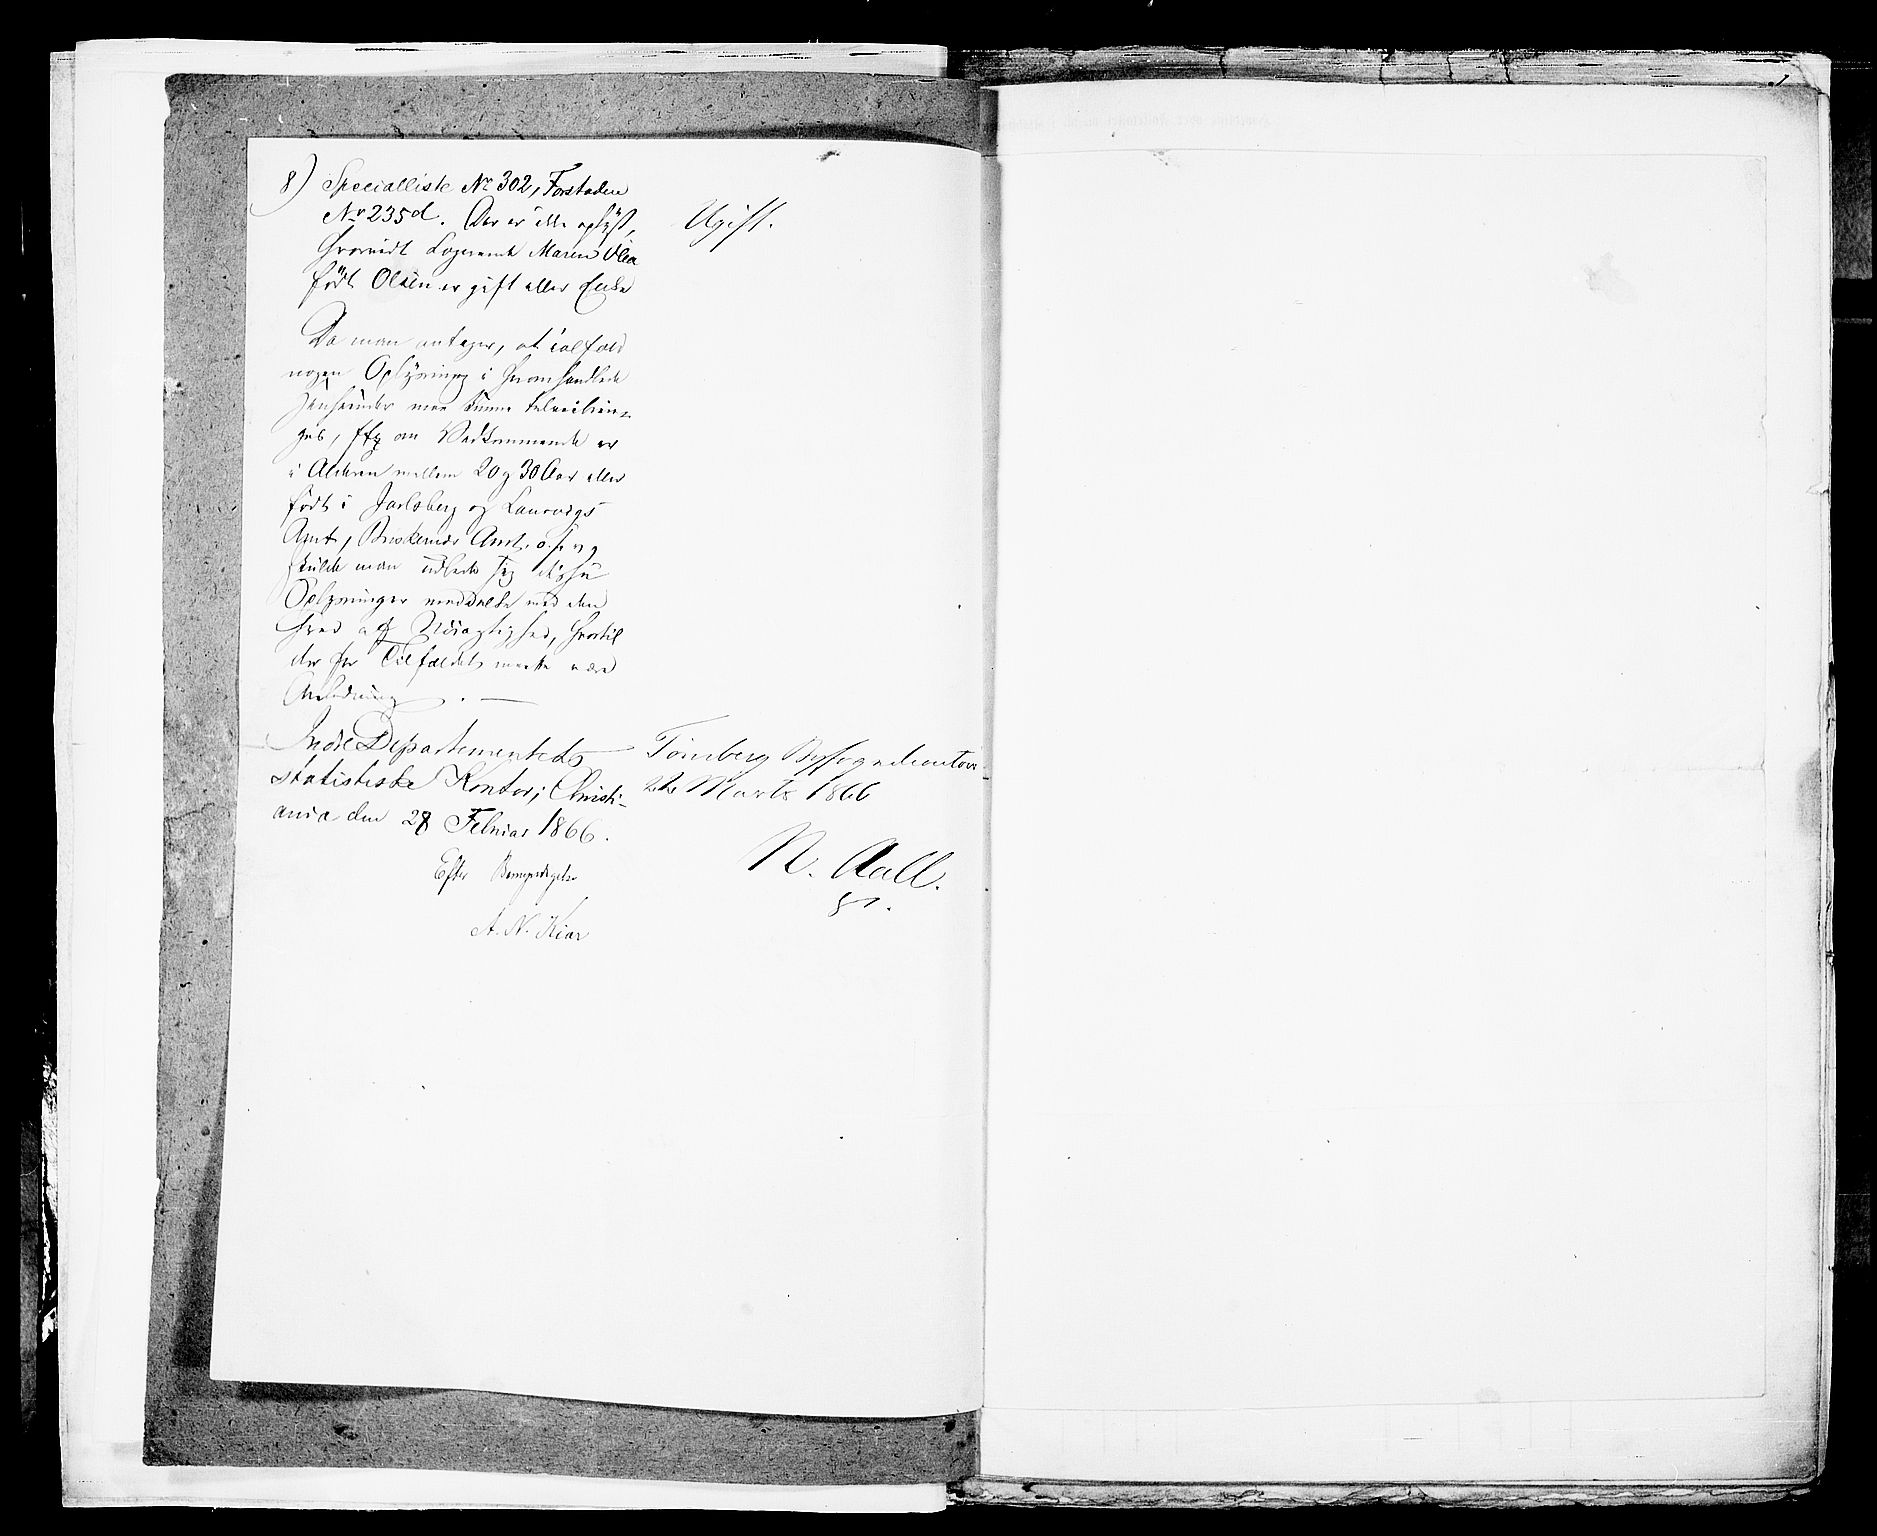 8) Specialliste Nr 302, Forstaden
Nr 235d. Der er ikke oplyst,
hvorvidt Logerende Maren Olea
født Olsen er gift eller Enke
Ugift.
Da man antager, at ialfald
nogen Oplysning i hvomhandlede
Henseender maa kunne tilveiebrin-
ges, om Vedkommende er
i Alderen mellem 20 og 30 Aar eller
født i Jarlsberg og Laurvigs
Amt, Buskeruds Amt. o. s. v.
skulde man udbede sig disse
Oplysninger meddelte med den
Grad af Nöiagtighed, hvortil
der for Tilfældet maatte være
Anledning. —
Indre Departementets
statistiske Kontor i Christi-
ania den 28 Februar 1866.
Efter Bemyndigelse
A. N. Kiær
Tönsberg Byfogedcontoir
Marts 1866
N. Aall.